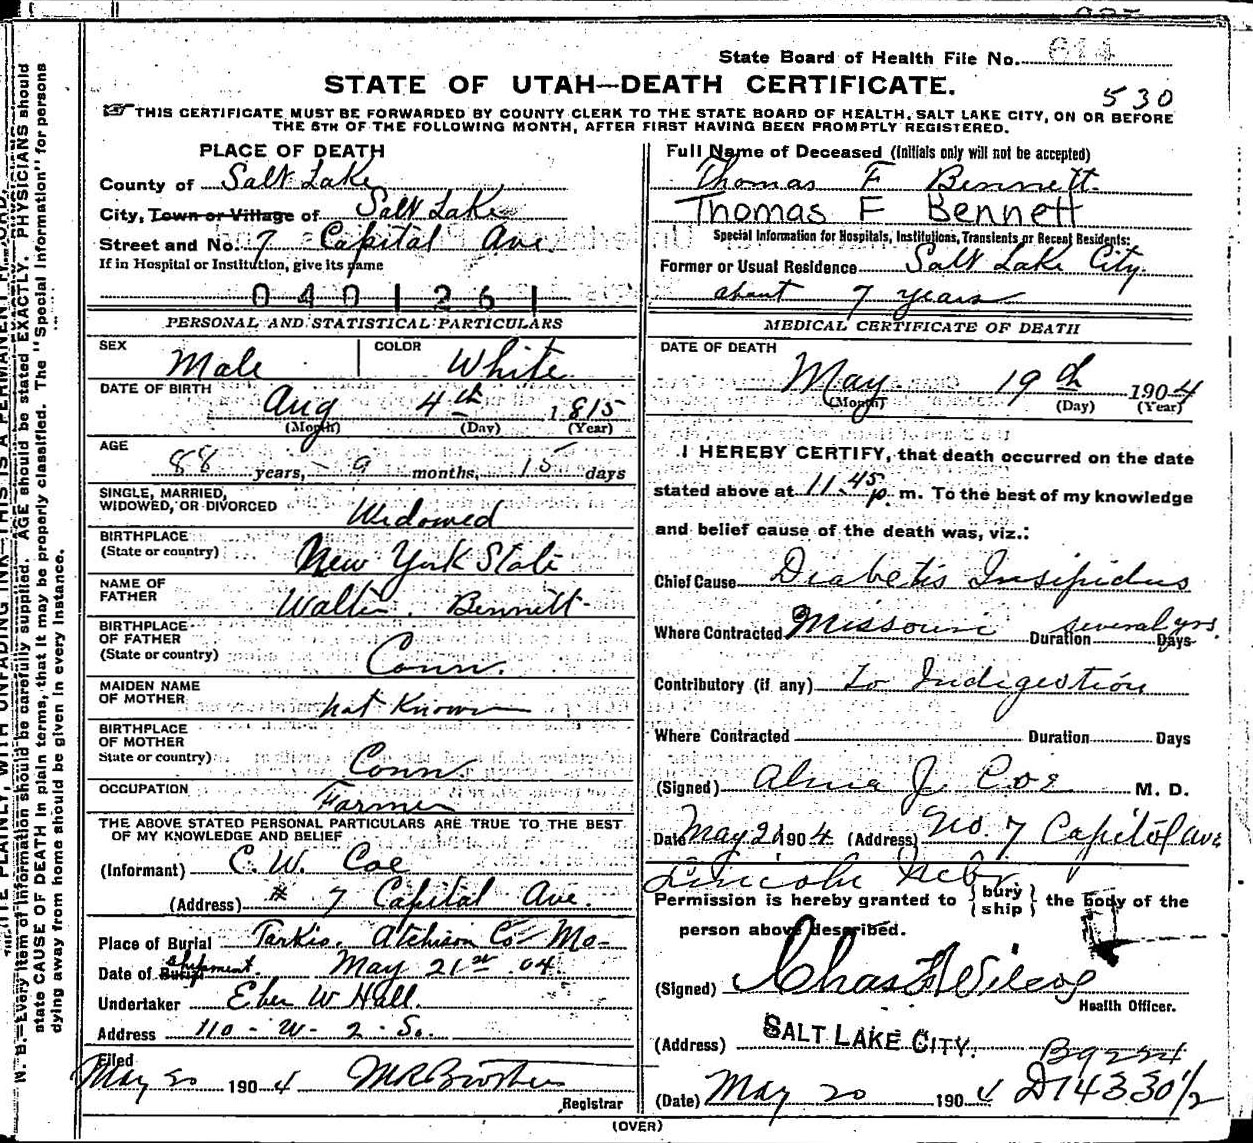 State Board of Health File No. 614
STATE OF UTAH—DEATH CERTIFICATE.
530
THIS CERTIFICATE MUST BE FORWARDED BY COUNTY CLERK TO THE STATE BOARD OF HEALTH, SALT LAKE CITY, ON OR BEFORE
THE 5TH OF THE FOLLOWING MONTH, AFTER FIRST HAVING BEEN PROMPTLY REGISTERED.
PLACE OF DEATH
County of Salt Lake
City, Town or Village of Salt Lake
Street and No. 7 Capital Ave
If in Hospital or Institution, give its name
0401261
PERSONAL AND STATISTICAL PARTICULARS
SEX Male COLOR White
DATE OF BIRTH
Aug 4th 1815
(Month) (Day) (Year)
AGE
88 years, 9 months, 15 days
SINGLE, MARRIED,
WIDOWED, OR DIVORCED Widowed
BIRTHPLACE
(State or country) New York State
NAME OF
FATHER Walter Bennett
BIRTHPLACE
OF FATHER
(State or country) Conn.
MAIDEN NAME
OF MOTHER not Known
BIRTHPLACE
OF MOTHER
State or country) Conn
OCCUPATION Farmer
THE ABOVE STATED PERSONAL PARTICULARS ARE TRUE TO THE BEST
OF MY KNOWLEDGE AND BELIEF
(Informant) C. W. Coe
(Address) # 7 Capital Ave.
Place of Burial Tarkio. Atchison Co Mo-
Date of Burial shipment. May 21st 04
Undertaker Eber W Hall.
Address 110 - W - 2 - So.
Filed
May 20 1904
Registrar
Full Name of Deceased (Initials only will not be accepted)
Thomas F Bennett.
Thomas F Bennett
Special Information for Hospitals, Institutions, Transients or Recent Residents:
Former or Usual Residence Salt Lake City.
about 7 years
MEDICAL CERTIFICATE OF DEATH
DATE OF DEATH
May 19th 1904
(Month) (Day) (Year)
I HEREBY CERTIFY, that death occurred on the date
stated above at 11.45 p. m. To the best of my knowledge
and belief cause of the death was, viz.:
Chief Cause Diabetis Insipidus
Where Contracted Missouri Duration several yrs. Days
Contributory (if any) To Indigestion
Where Contracted Duration Days
(Signed) Alma J. Coe M. D.
Date May 21 1904 (Address) No. 7 Capitol Ave
Lincoln Nebr
Permission is hereby granted to { bury ship } the body of the
person above described.
(Signed) Chas F Wilcox
Health Officer.
(Address) SALT LAKE CITY.
B9224
(Date) May 20 1904 D14330 1/2
(OVER)
N. B.—Every item of information should be carefully supplied. AGE should be stated EXACTLY. PHYSICIANS should
state CAUSE OF DEATH in plain terms, that it may be properly classified. The "Special Information" for persons
dying away from home should be given in every instance.